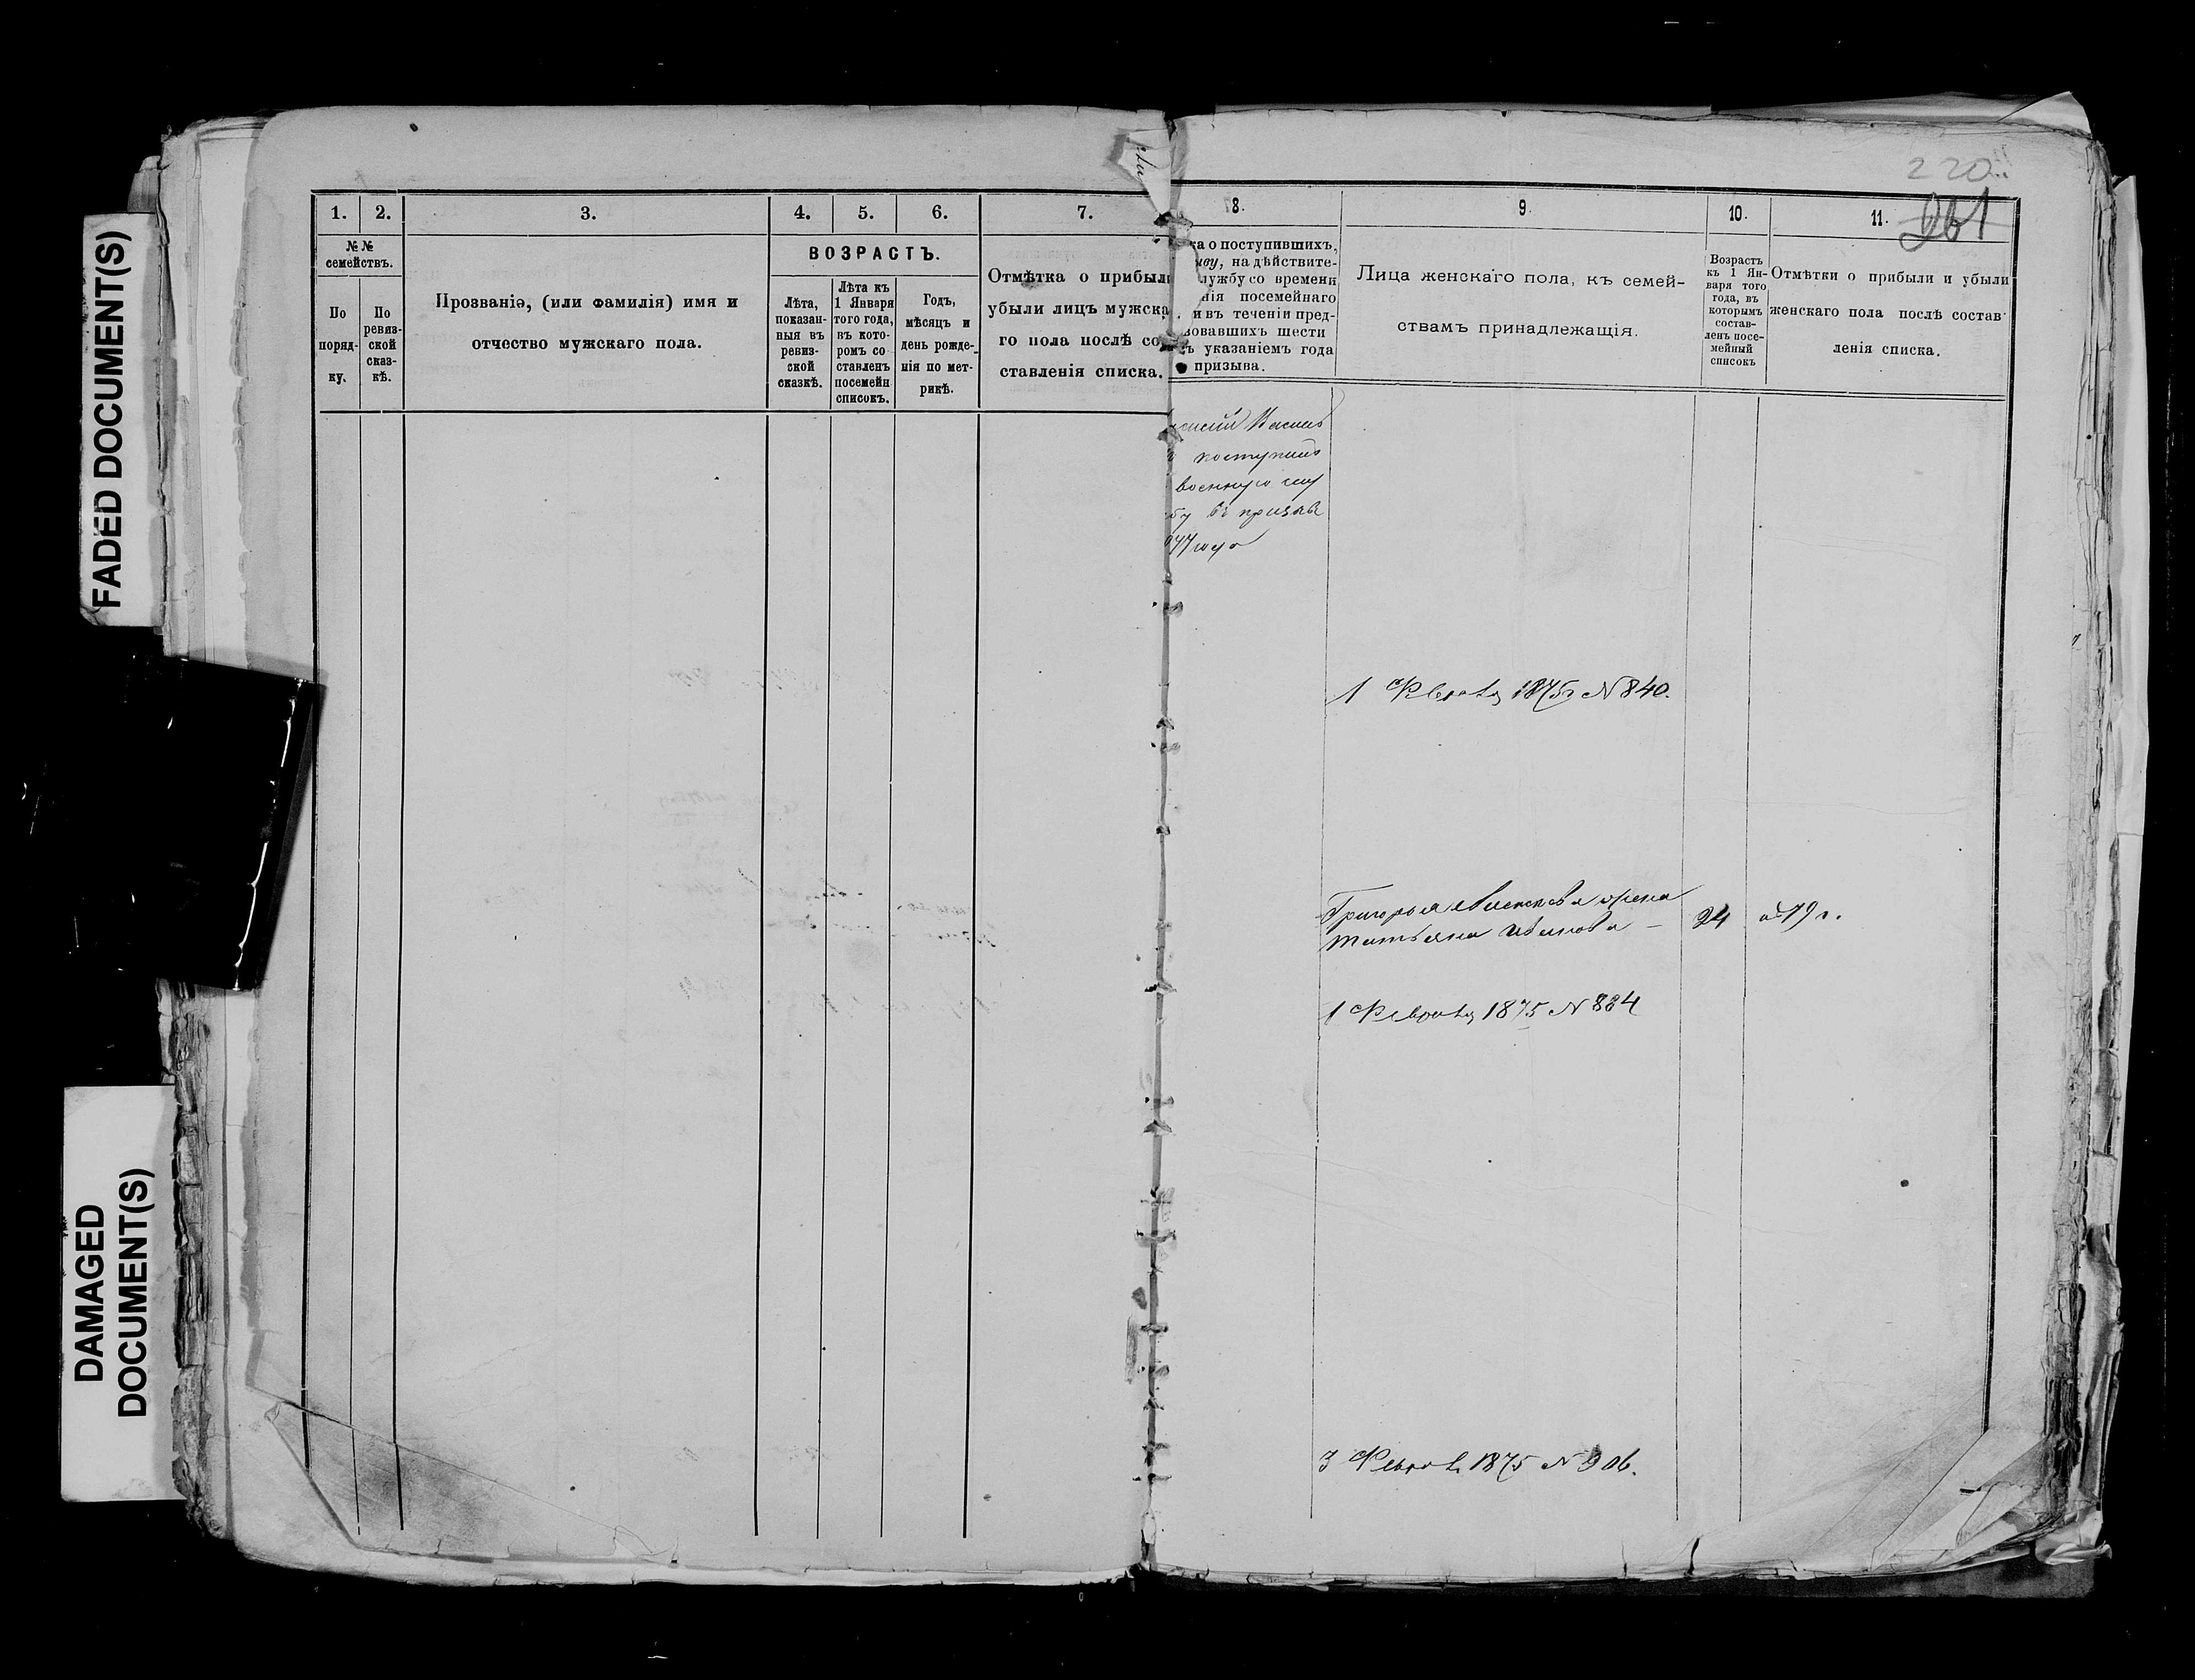 FADED DOCUMENT(S)
DAMAGED
DOCUMENT(S)
1.
2.
3.
4.
5.
6.
7.
№ №
семействъ.
По
поряд-
ку.
По
ревиз-
ской
сказ-
кѣ.
Прозваніе, (или фамилія) имя и
отчество мужскаго пола.
ВОЗРАСТЪ.
Лѣта,
показан-
ныя въ
ревиз-
ской
сказкѣ.
Лѣта къ
1 Января
того года,
въ кото-
ромъ со
ставленъ
посемейн
списокъ.
Годъ,
мѣсяцъ и
день рожде-
нія по мет-
рикѣ.
Отмѣтка о прибыли
убыли лицъ мужска
го пола послѣ со
ставленія списка.
220
261
8.
9.
10.
11.
ка о поступившихъ,
иву, на дѣйствите-
лужбу со времени
нія посемейнаго
и въ теченіи пред-
вовавшихъ шести
ъ указаніемъ года
призыва.
Лица женскаго пола, къ семей-
ствамъ принадлежащія.
Возрастъ
къ 1 Ян-
варя того
года, въ
которымъ
состав-
ленъ посе-
мейный
списокъ
Отмѣтки о прибыли и убыли
женскаго пола послѣ состав
ленія списка.
поступилъ
военную слу
бу въ призывѣ
77 года
1 Февраля 1875 г N 840.
Григорья жена
Татьяна Иванова — 24
79 г.
1 Февраля 1875 N 884
3 Февраля 1875 N 906.